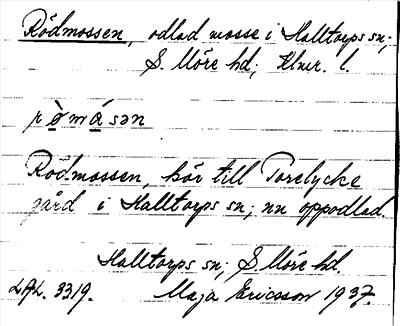 Rödmossen, odlad mosse i Halltorps sn;
S. Möre hd; Klmr. l.
rò̱má̱sən
Rödmossen, hör till Torelycke
gård i Halltorps sn; nu oppodlad.
Halltorps sn; S. Möre hd.
LAL. 3319. Maja Ericsson 1937.